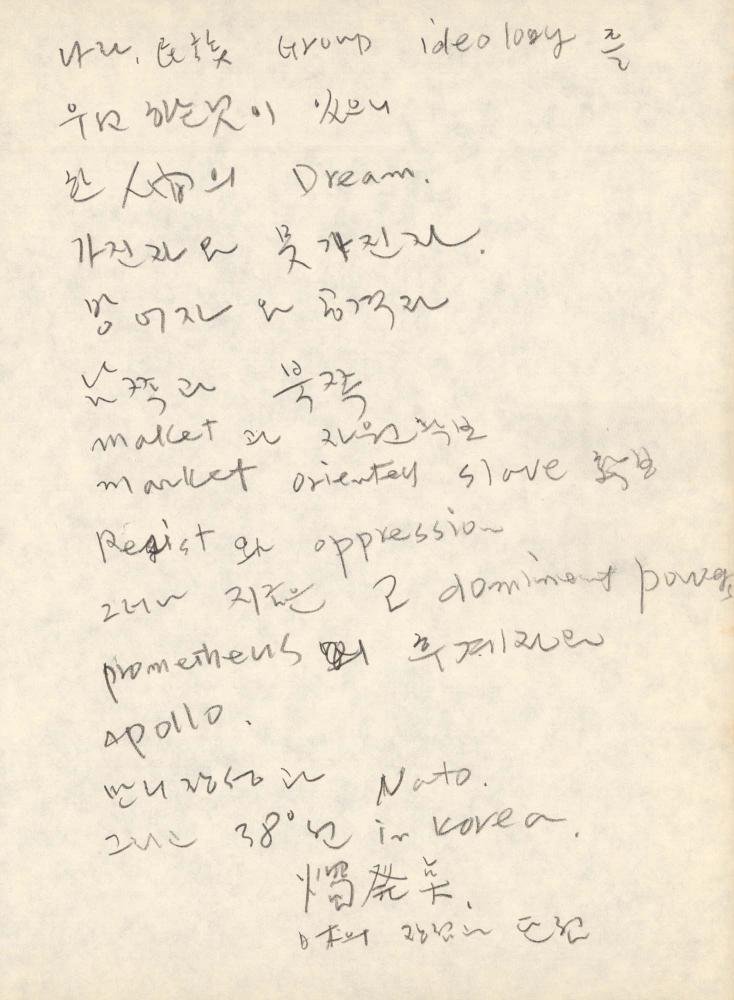 나라, 民族 Group ideology 를
우파 하는것이 있으니
한 人間의 Dream.
가진자와 못가진자.
방어자와 공격자
남쪽과 북쪽
maket 과 자원확보
market oriented slave 확보
Resist 와 oppression
그러나 지금은 2 dominant powers
prometheus의 후계자와
Apollo.
만니장성과 Nato.
그리고 38°선 in Korea.
日本의